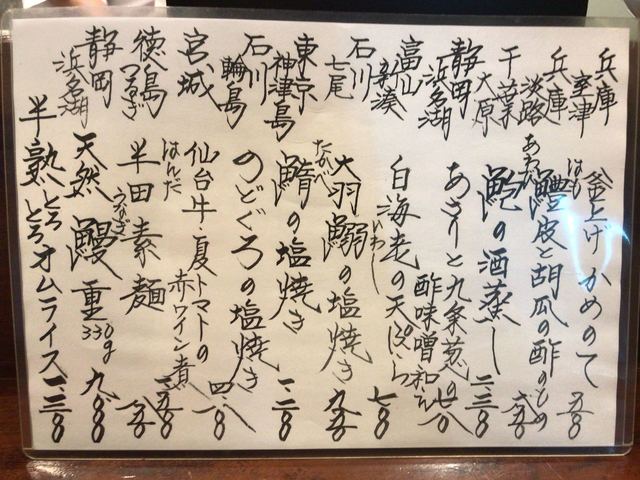 兵庫 室津 釜上げかめのて 五.五〇
兵庫 淡路 鱧皮と胡瓜の酢のもの
はも
千葉 大原 鮑の酒蒸し 二.三八〇
あわび
静岡 浜名湖 あさりと九条葱の酢味噌和え 七八〇
富山 新湊 白海老の天ぷら 七八〇
石川 七尾 大羽鰯の塩焼き 九五〇
いわし
東京 神津島 鰖の塩焼き 一.二八〇
たかべ
石川 輪島 のどぐろの塩焼き 四.八〇
宮城 仙台牛・夏トマトの赤ワイン煮
徳島 つるぎ 半田素麺 八五〇
はんだ
静岡 浜名湖 天然 鰻重 330g 九.八〇〇
うなぎ
半熟とろとろオムライス 一.三八〇